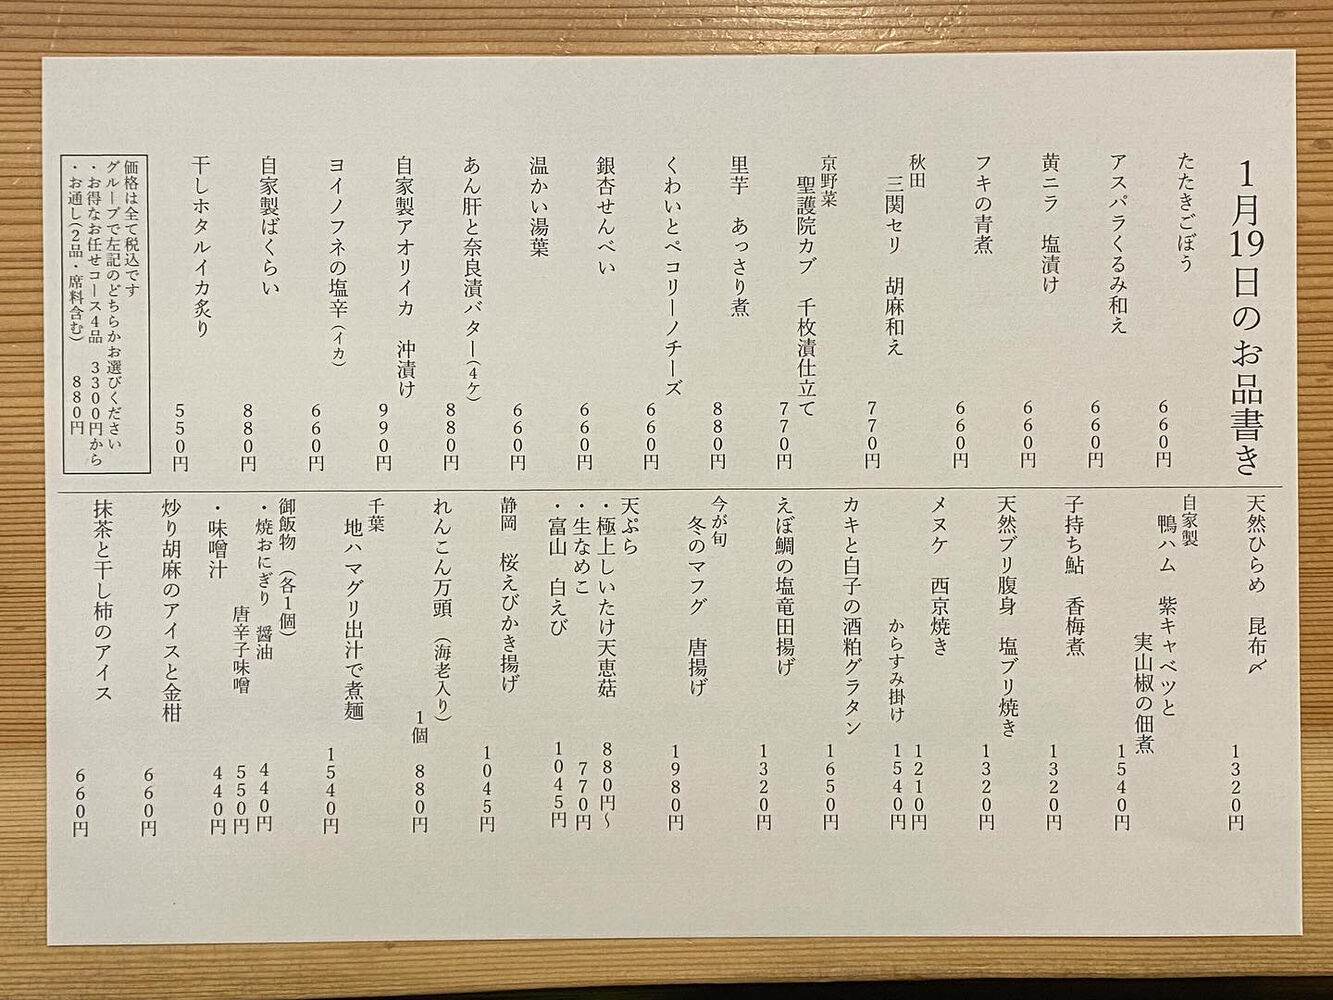 1月19日のお品書き
たたきごぼう 660円
アスパラくるみ和え 660円
黄ニラ 塩漬け 660円
フキの青煮 660円
秋田
三関セリ 胡麻和え 770円
京野菜
聖護院カブ 千枚漬仕立て 770円
里芋 あっさり煮 880円
くわいとペコリーノチーズ 660円
銀杏せんべい 660円
温かい湯葉 660円
あん肝と奈良漬バター(4ケ) 880円
自家製アオリイカ 沖漬け 990円
ヨイノフネの塩辛(イカ) 660円
自家製ばくらい 880円
干しホタルイカ炙り 550円
価格は全て税込です
グループで左記のどちらかお選びください
・お得なお任せコース4品 3300円から
・お通し(2品・席料含む) 880円
天然ひらめ 昆布〆 1320円
自家製
鴨ハム 紫キャベツと
実山椒の佃煮 1540円
子持ち鮎 香梅煮 1320円
天然ブリ腹身 塩ブリ焼き 1320円
メヌケ 西京焼き 1210円
からすみ掛け 1540円
カキと白子の酒粕グラタン 1650円
えぼ鯛の塩竜田揚げ 1320円
今が旬
冬のマフグ 唐揚げ 1980円
天ぷら
・極上しいたけ天恵菇 880円〜
・生なめこ 770円
・富山 白えび 1045円
静岡 桜えびかき揚げ 1045円
れんこん万頭(海老入り)
1個 880円
千葉
地ハマグリ出汁で煮麺 1540円
御飯物(各1個)
・焼おにぎり 醤油 440円
唐辛子味噌 550円
・味噌汁 440円
炒り胡麻のアイスと金柑 660円
抹茶と干し柿のアイス 660円